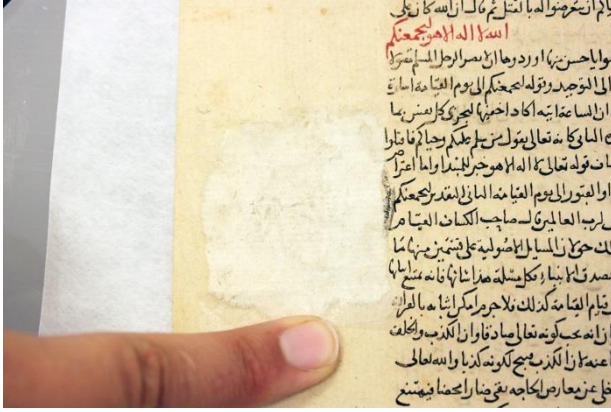 ان تتعرضوا له بالقتل ثم قال ان الله كان على
الله لا اله الا هو ليجمعنكم
باحسن منها او ردوها ان لا يصير الرجل المسلم مقتولا
الى التوحيد وقوله ليجمعنكم الى يوم القيامة اشارة
ان الساعة اتيه اكاد اخفيها لتجزى كل نفس بما
الثاني كانه تعالى يقول من سلم عليكم وحياكم فاقبلوا
قوله تعالى لا اله الا هو خبر للمبتدا واما اعتراض
او القبور الى يوم القيامه الثاني التقدير ليجمعنكم
لرب العالمين قال صاحب الكشاف القيام
حق لان المسايل الاصولية على قسمين منها ما
بصدق الانبياء فكل مسئلة هذا شانها فانه يمتنع اثباتها
قيام القيامة كذلك فلا جرم امكن اثباته بالقران
انه يجب كونه تعالى صادقا وان الكذب والخلف
عنه لان الكذب قبيح لكونه كذبا والله تعالى
عن معارض الحاجه بقى ضارا محضا فيمتنع